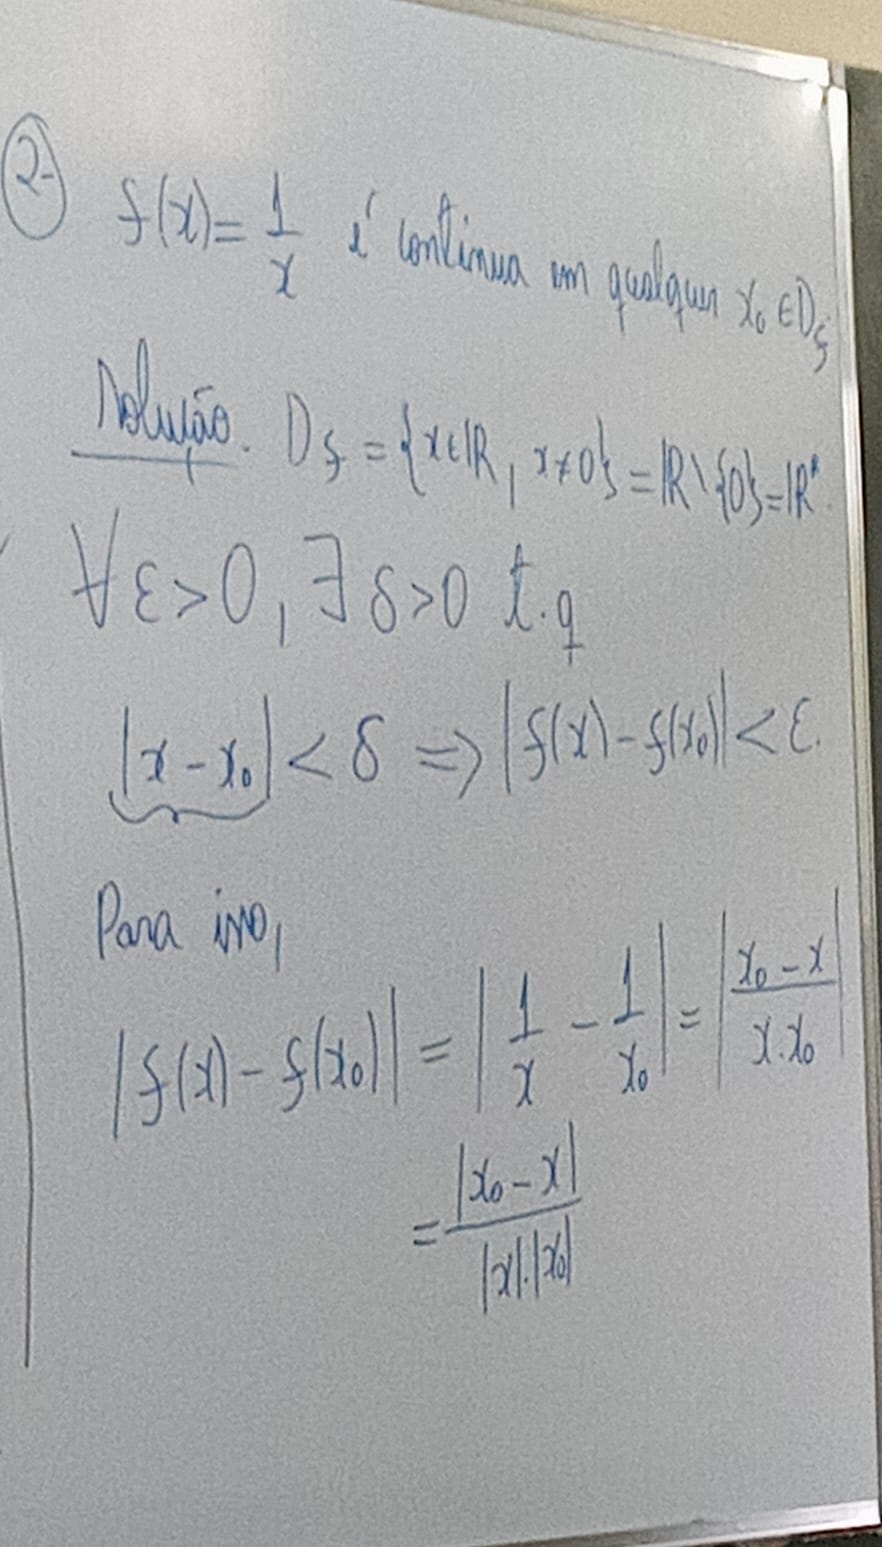 2- f(x) = 1/x é contínua em qualquer x₀ ∈ D_f
Solução. D_f = {x ∈ ℝ, x ≠ 0} = ℝ \ {0} = ℝ*.
∀ ε > 0, ∃ δ > 0 t.q
|x - x₀| < δ ⇒ |f(x) - f(x₀)| < ε.
Para isso,
|f(x) - f(x₀)| = |1/x - 1/x₀| = |(x₀ - x)/(x.x₀)|
= |x₀ - x|/(|x|.|x₀|)